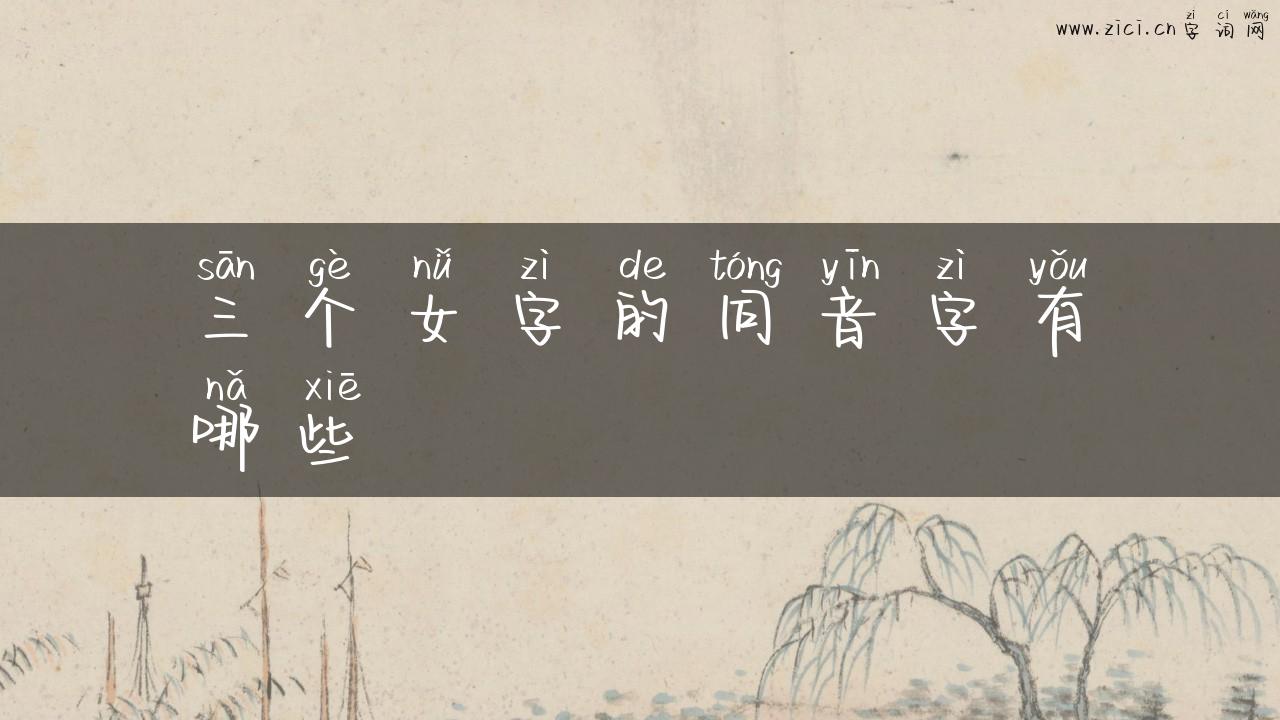 zì cí wǎng
www.zici.cn 字词网
sān gè nǚ zì de tóng yīn zì yǒu
三个女字的同音字有
nǎ xiē
哪些